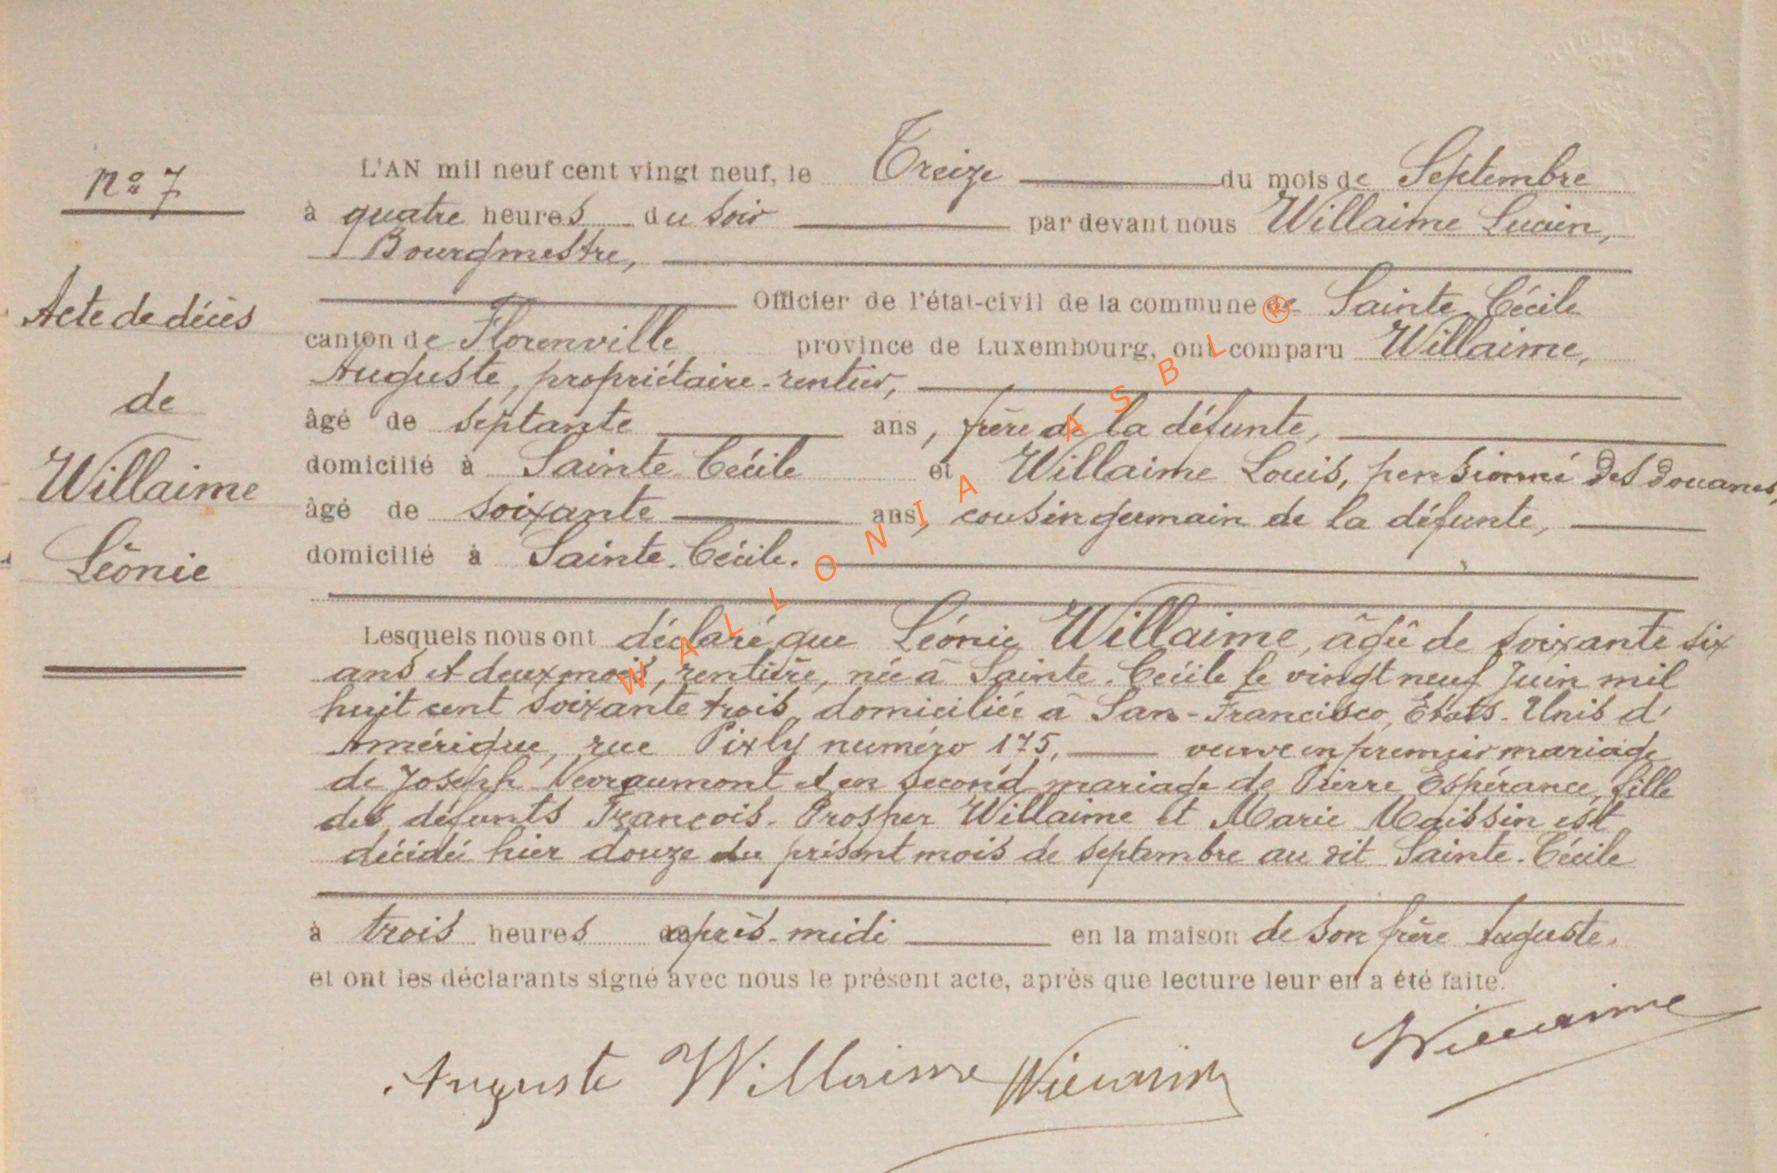 Nº 7
Acte de décès
de
Willaime
Léonie
L'AN mil neuf cent vingt neuf, le Treize du mois de Septembre
à quatre heures du soir par devant nous Willaime Lucien,
Bourgmestre,
Officier de l'état-civil de la commune de Sainte-Cécile
canton de Florenville province de Luxembourg, ont comparu Willaime,
Auguste, propriétaire-rentier,
âgé de septante ans, frère de la défunte,
domicilié à Sainte-Cécile et Willaime Louis, pensionné des douanes,
âgé de soixante ans, cousin germain de la défunte,
domicilié à Sainte-Cécile.
Lesquels nous ont déclaré que Léonie Willaime, âgé de soixante six
ans et deux mois, rentière, née à Sainte-Cécile le vingt neuf Juin mil
huit cent soixante trois, domiciliée à San-Francisco, Etats-Unis d'
Amérique, rue Pixly numéro 175, veuve en premier mariage
de Joseph Nevraumont et en second mariage de Pierre Espérance, fille
des défunts François-Prosper Willaime et Marie Maissin est
décédée hier douze du présent mois de septembre au dit Sainte-Cécile
à trois heures après-midi en la maison de son frère Auguste.
et ont les déclarants signé avec nous le présent acte, après que lecture leur en a été faite.
Auguste Willaime Willaime Willaime
WALLONIA ASBL ®